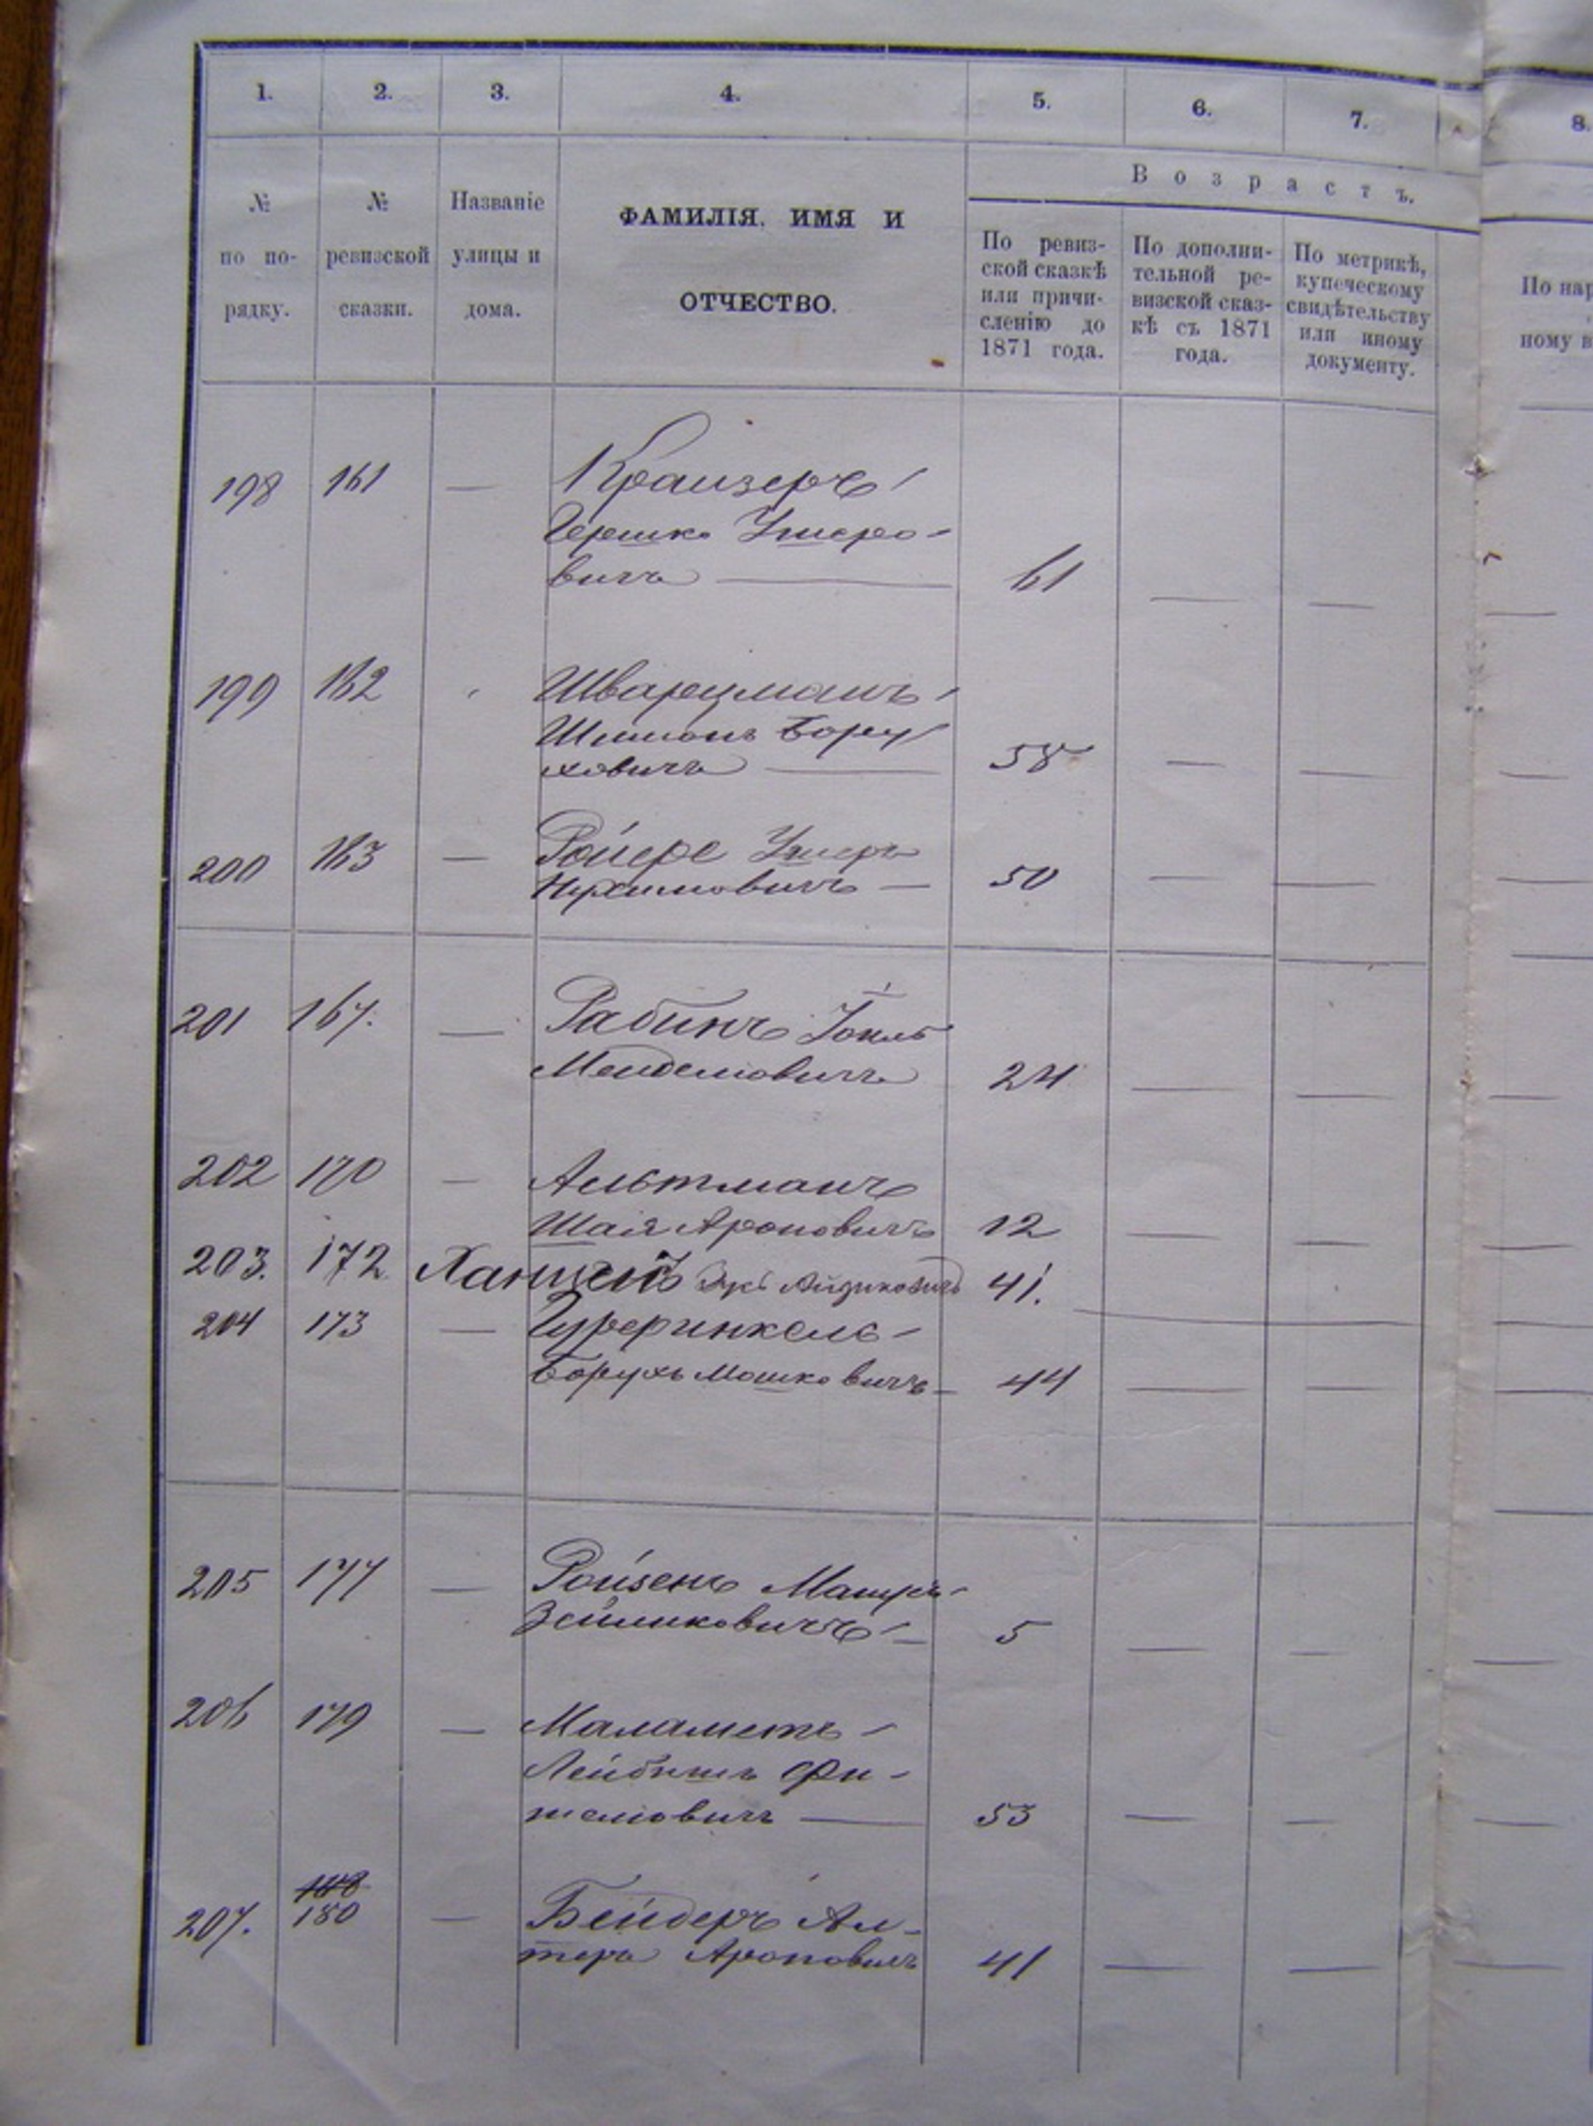 1. 2. 3. 4. 5. 6. 7. 8.
№ по по-рядку.
№ ревизской сказки.
Названіе улицы и дома.
ФАМИЛІЯ, ИМЯ И
ОТЧЕСТВО.
Возрастъ.
По ревиз-
ской сказкѣ
или причи-
сленію до
1871 года.
По дополни-
тельной ре-
визской сказ-
кѣ съ 1871
года.
По метрикѣ,
купеческому
свидѣтельству
или иному
документу.
По нар
ному в
198 161 — Краизеръ
Гершко Умеро-
вичъ — 61 — —
199 162 Шварцманъ
Шимонъ Бору
ховичъ — 58 — —
200 163 — Ройсре Умеръ
Нухимовичъ — 50 — —
201 167. — Рабинъ Іоиль
Менделіовичъ 24 — —
202 170 — Альтманъ
Шая Ароновичъ 12 — —
203. 172 Айзиковичъ 41.
204 173 —
Борухъ Мошковичъ — 44 — —
205 177 — Ройзенъ
Зейликовичъ — 5 — —
206 179 — Маламетъ
Лейбишъ Фи-
шеліовичъ — 53 — —
207. 180 — Бейдеръ Ал-
теръ Ароновичъ 41 — —